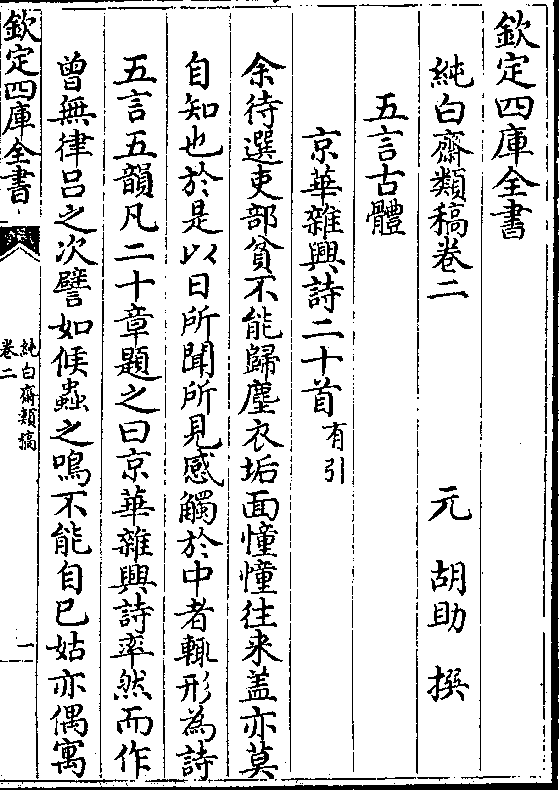 欽定四庫全書
純白齋類稿卷二
元 胡助 撰
五言古體
京華雜興詩二十首有引
余待選吏部貧不能歸塵衣垢面憧憧往来盖亦莫
自知也於是以日所聞所見感觸於中者輒形為詩
五言五韻凡二十章題之曰京華雜興詩率然而作
曾無律呂之次譬如候蟲之鳴不能自已姑亦偶寓
欽定四庫全書
純白齋類稿
卷二
一